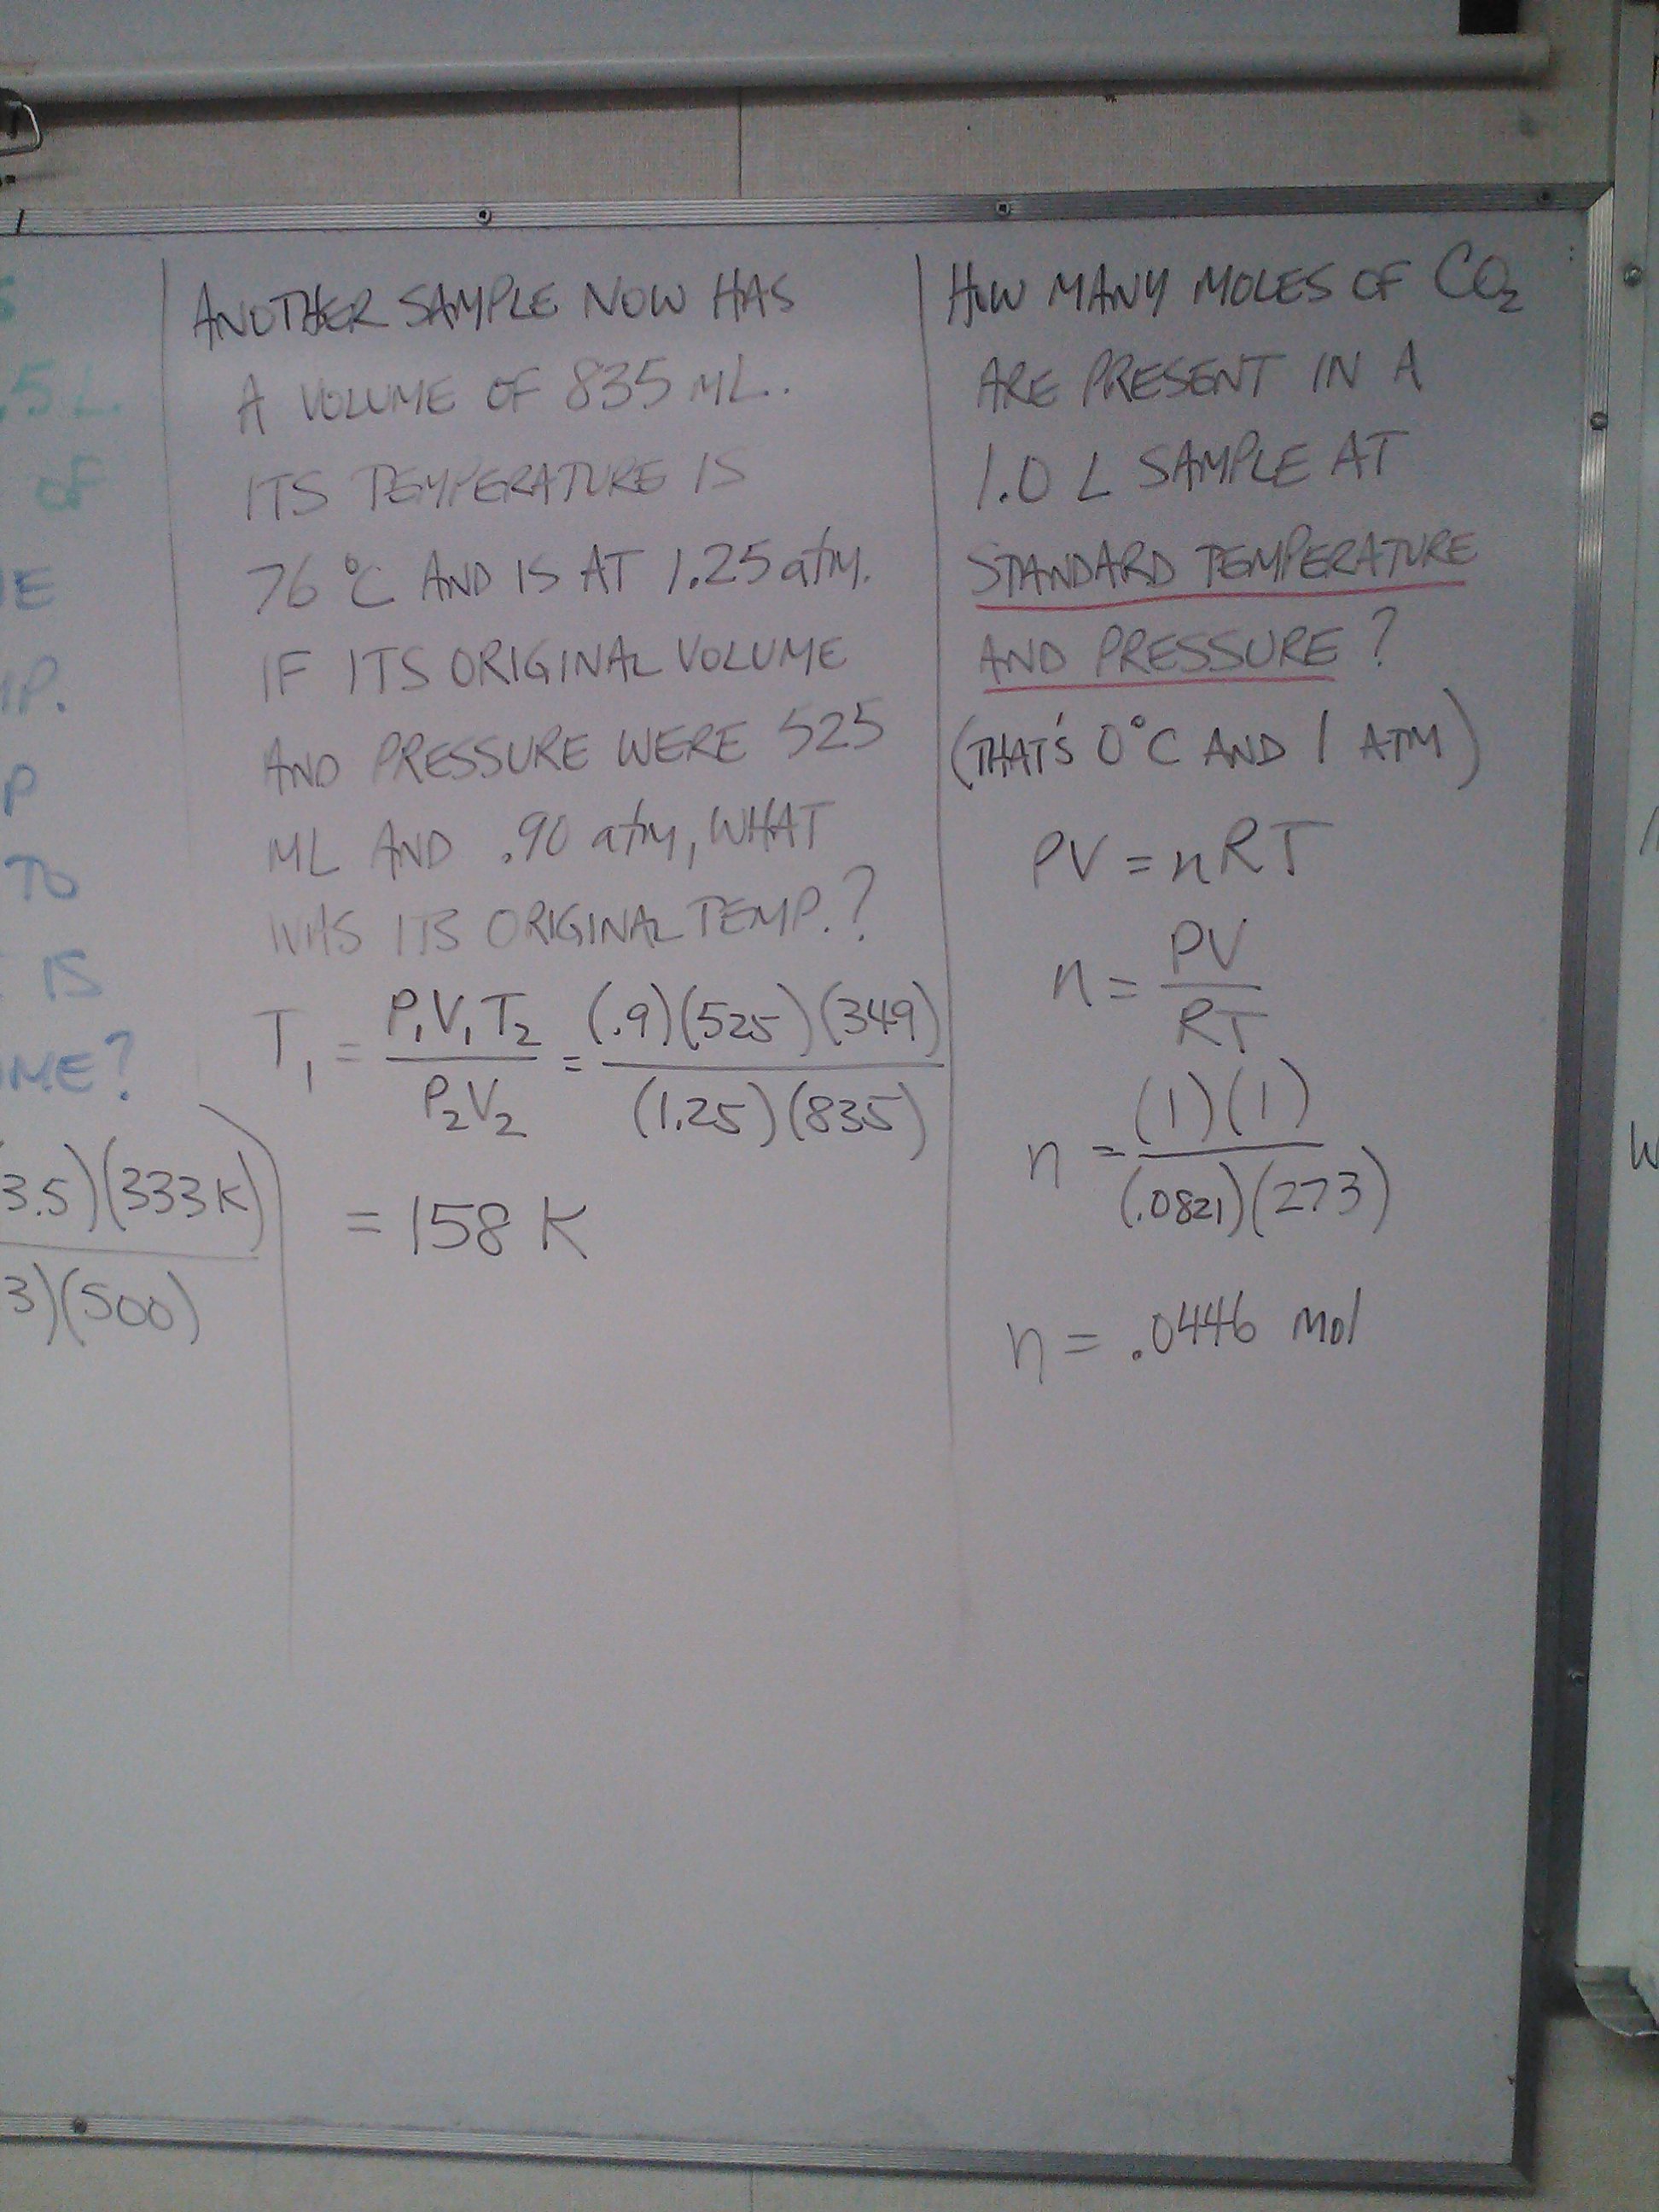 5 L
OF
E
P.
P
TO
IS
ME?
3.5)(333K)
3)(500)
ANOTHER SAMPLE NOW HAS
A VOLUME OF 835 ML.
ITS TEMPERATURE IS
76 °C AND IS AT 1.25 atm.
IF ITS ORIGINAL VOLUME
AND PRESSURE WERE 525
ML AND .90 atm, WHAT
WAS ITS ORIGINAL TEMP.?
T₁ = P₁V₁T₂ / P₂V₂ = (.9)(525)(349) / (1.25)(835)
= 158 K
HOW MANY MOLES OF CO₂
ARE PRESENT IN A
1.0 L SAMPLE AT
STANDARD TEMPERATURE
AND PRESSURE?
(THAT'S 0°C AND 1 ATM)
PV = nRT
n = PV / RT
n = (1)(1) / (.0821)(273)
n = .0446 mol
W